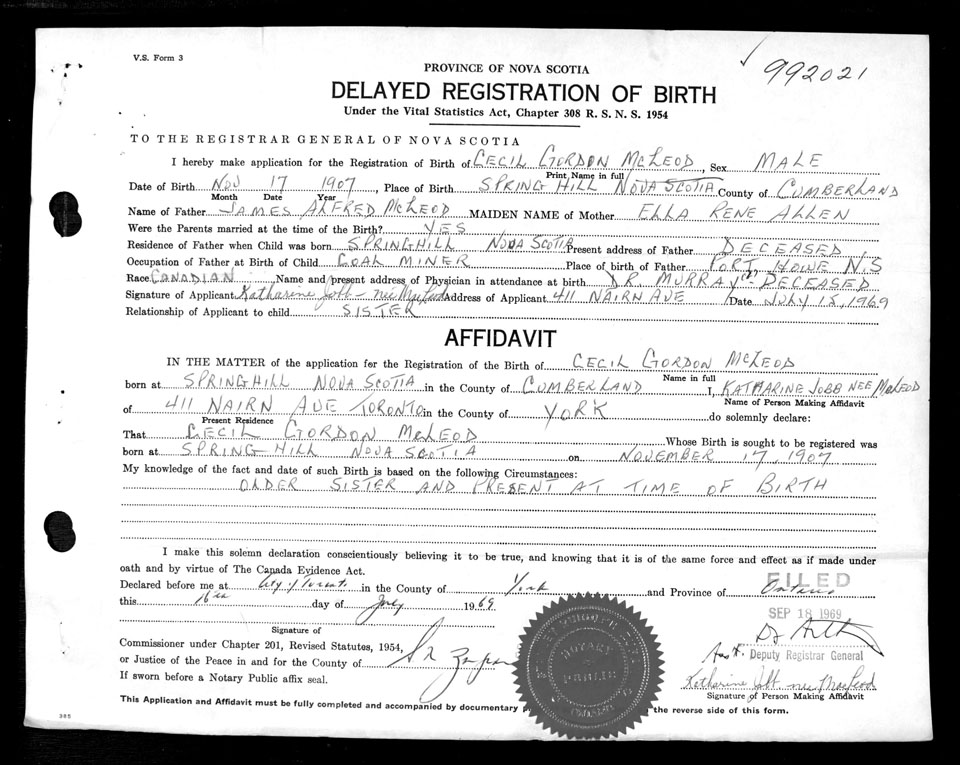 V.S. Form 3
992021
PROVINCE OF NOVA SCOTIA
DELAYED REGISTRATION OF BIRTH
Under the Vital Statistics Act, Chapter 308 R. S. N. S. 1954
TO THE REGISTRAR GENERAL OF NOVA SCOTIA
I hereby make application for the Registration of Birth of CECIL GORDON McLEOD, Sex MALE
Print Name in full
Date of Birth NOV 17 1907, Place of Birth SPRING HILL NOVA SCOTIA County of CUMBERLAND
Month Date Year
Name of Father JAMES ALFRED McLEOD MAIDEN NAME of Mother ELLA RENE ALLEN
Were the Parents married at the time of the Birth? YES
Residence of Father when Child was born SPRINGHILL NOVA SCOTIA Present address of Father DECEASED
Occupation of Father at Birth of Child COAL MINER Place of birth of Father PORT HOWE N.S
Race CANADIAN Name and present address of Physician in attendance at birth DR. MURRAY DECEASED
Signature of Applicant Katharine Jobb - nee MacLeod Address of Applicant 411 NAIRN AVE Date JULY 15, 1969
Relationship of Applicant to child SISTER
AFFIDAVIT
IN THE MATTER of the application for the Registration of the Birth of CECIL GORDON McLEOD
Name in full
born at SPRINGHILL NOVA SCOTIA in the County of CUMBERLAND I, KATHARINE JOBB NEE McLEOD
Name of Person Making Affidavit
of 411 NAIRN AVE TORONTO in the County of YORK do solemnly declare:
Present Residence
That CECIL GORDON McLEOD Whose Birth is sought to be registered was
born at SPRING HILL NOVA SCOTIA on NOVEMBER 17, 1907
My knowledge of the fact and date of such Birth is based on the following Circumstances:
OLDER SISTER AND PRESENT AT TIME OF BIRTH
I make this solemn declaration conscientiously believing it to be true, and knowing that it is of the same force and effect as if made under
oath and by virtue of The Canada Evidence Act.
Declared before me at City of Toronto in the County of York and Province of Ontario
FILED
this 16th day of July 1969
SEP 18 1969
Signature of
Commissioner under Chapter 201, Revised Statutes, 1954,
or Justice of the Peace in and for the County of
If sworn before a Notary Public affix seal.
NOTARY
PUBLIC
Ass't. Deputy Registrar General
Katharine Jobb nee MacLeod
Signature of Person Making Affidavit
This Application and Affidavit must be fully completed and accompanied by documentary the reverse side of this form.
385